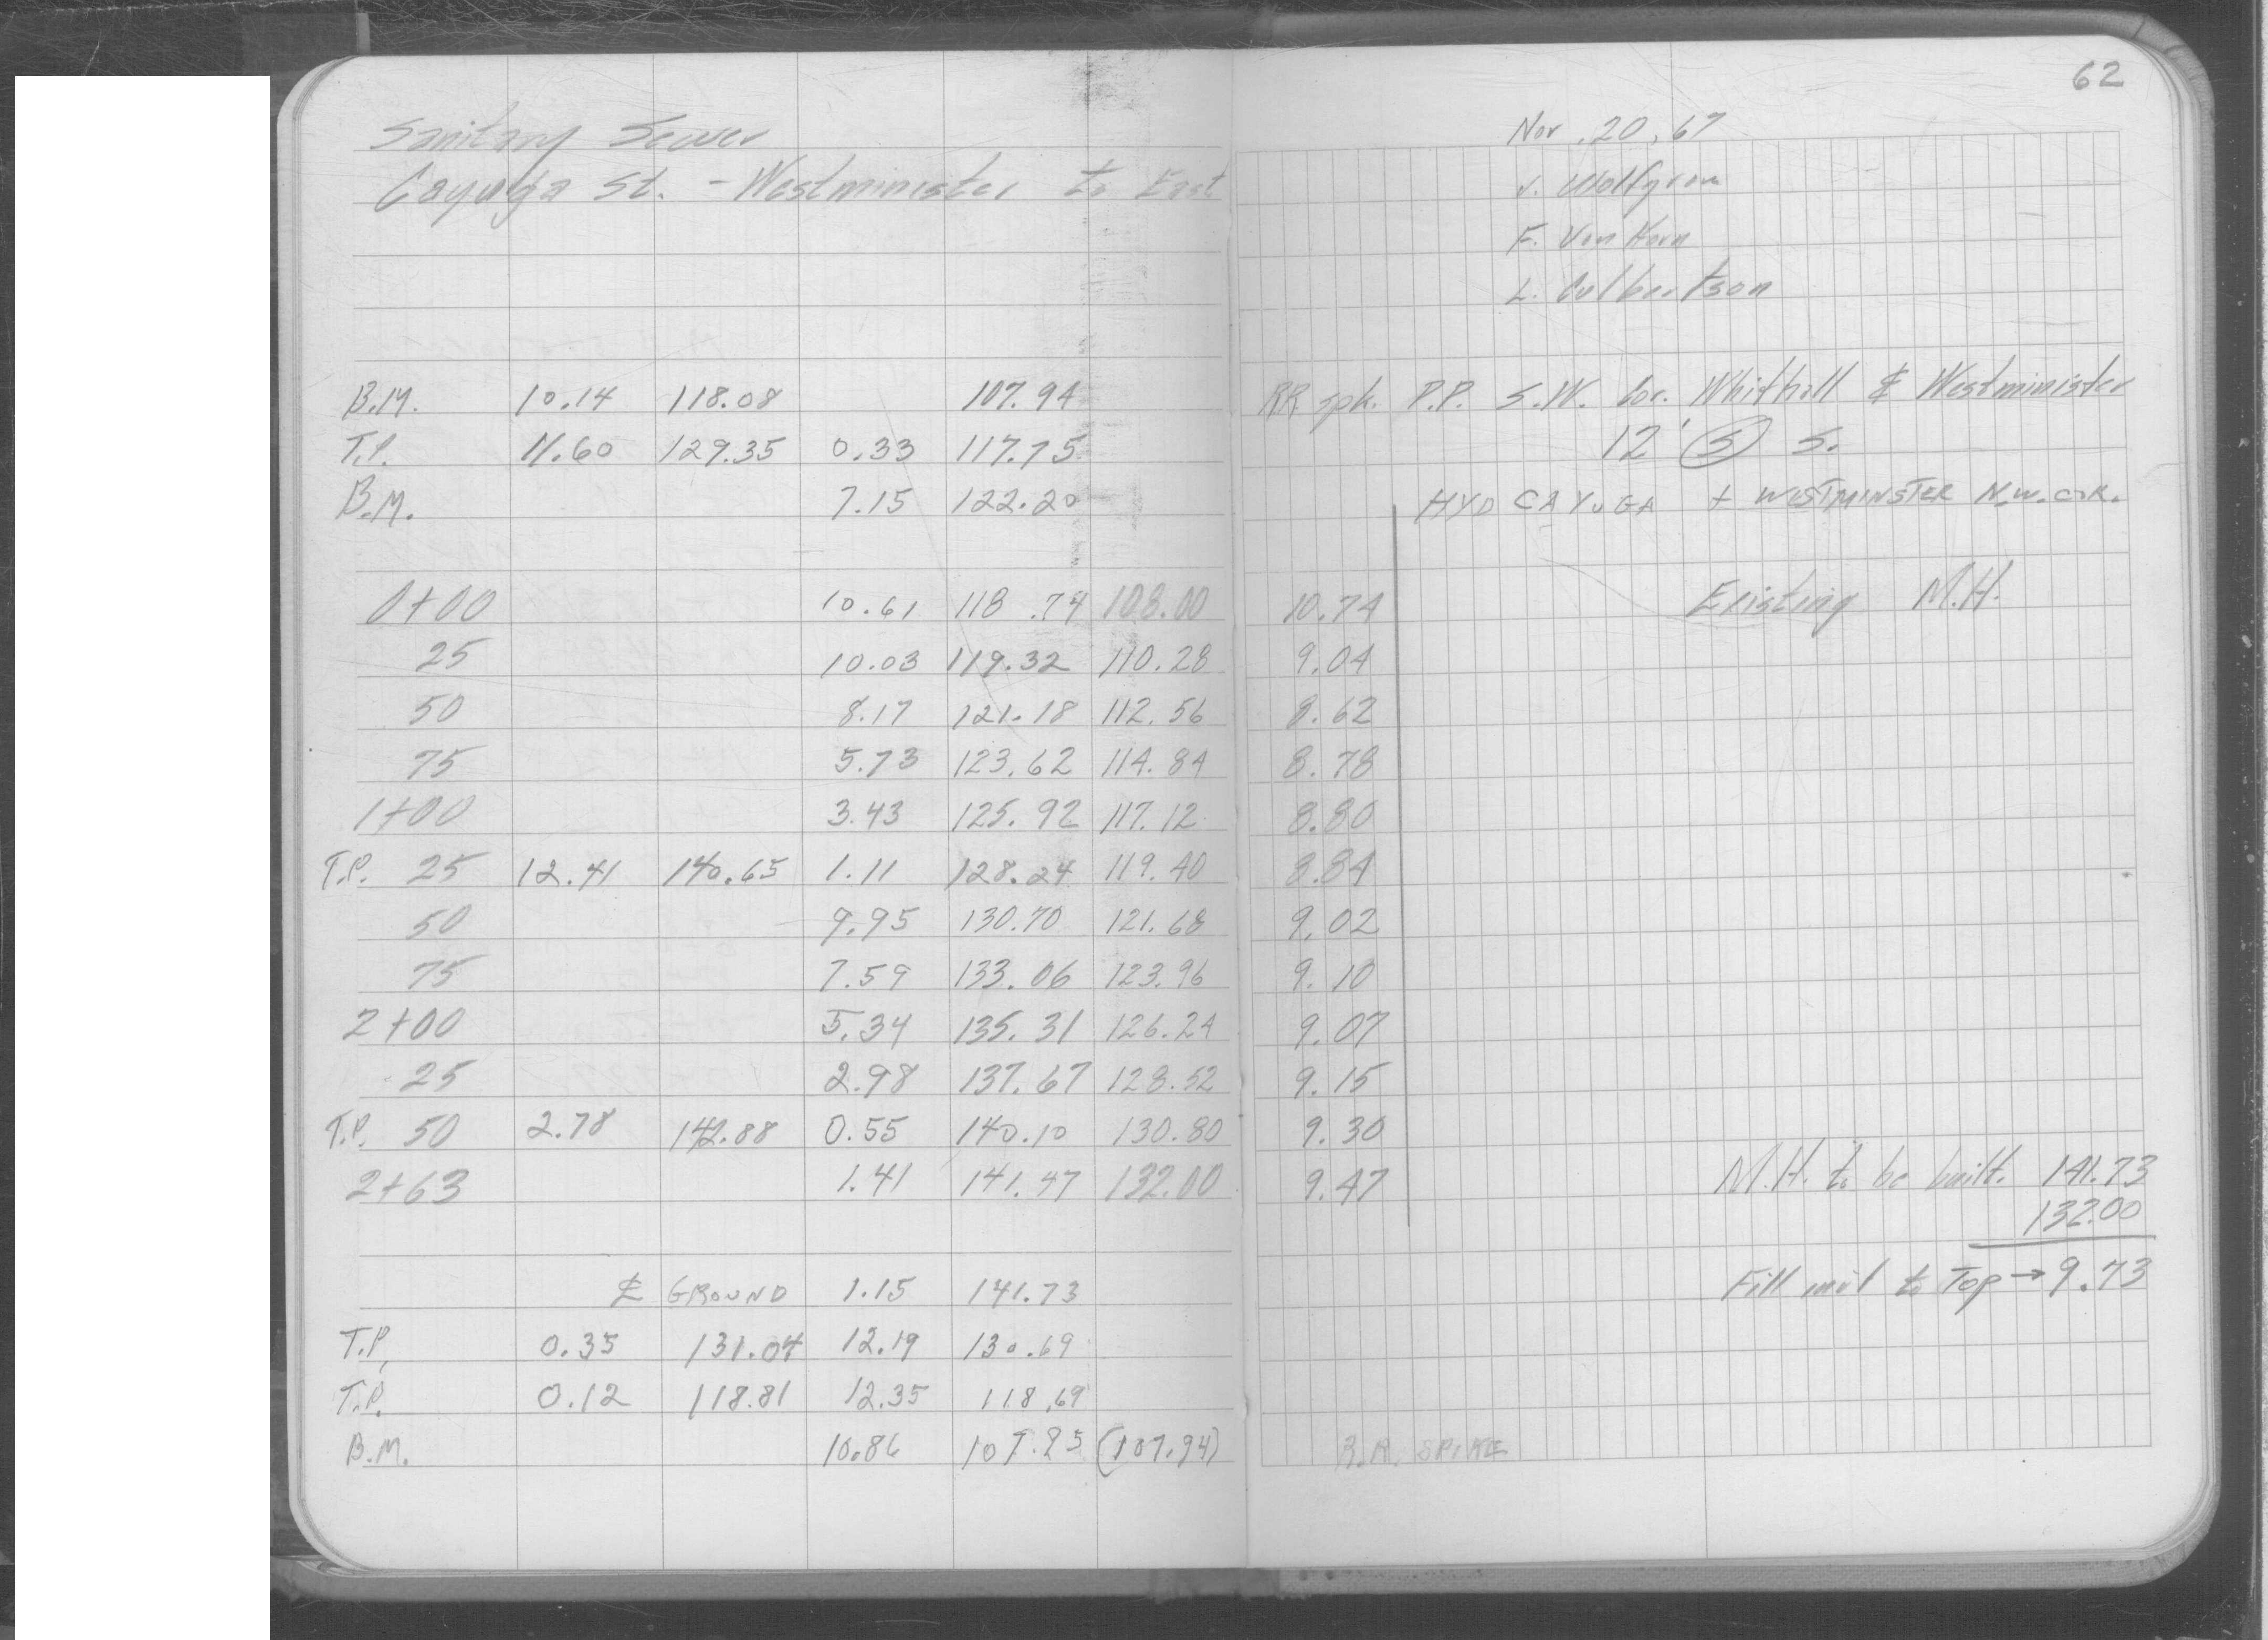 62
Sanitary Sewer
Cayuga St. - Westminister to East
Nov. 20, 67
V. Wolfgram
F. Van Horn
L. Culbertson
B.M. 10.14 118.08 107.94 RR spk. P.P. S.W. Cor. Whithall & Westminister
T.P. 11.60 129.35 0.33 117.75 12' S S.
B.M. 7.15 122.20 HYD CAYUGA + WESTMINSTER N.W. COR.
0+00 10.61 118.74 108.00 10.74 Existing M.H.
25 10.03 119.32 110.28 9.04
50 8.17 121.18 112.56 8.62
75 5.73 123.62 114.84 8.78
1+00 3.43 125.92 117.12 8.80
T.P. 25 12.41 140.65 1.11 128.24 119.40 8.84
50 9.95 130.70 121.68 9.02
75 7.59 133.06 123.96 9.10
2+00 5.34 135.31 126.24 9.07
25 2.98 137.67 128.52 9.15
T.P. 50 2.78 142.88 0.55 140.10 130.80 9.30
2+63 1.41 141.47 132.00 9.47 M.H. to be built. 141.73
132.00
℄ GROUND 1.15 141.73 Fill to Top → 9.73
T.P. 0.35 131.04 12.19 130.69
T.P. 0.12 118.81 12.35 118.69
B.M. 10.86 107.95 (107.94) R.R. SPIKE